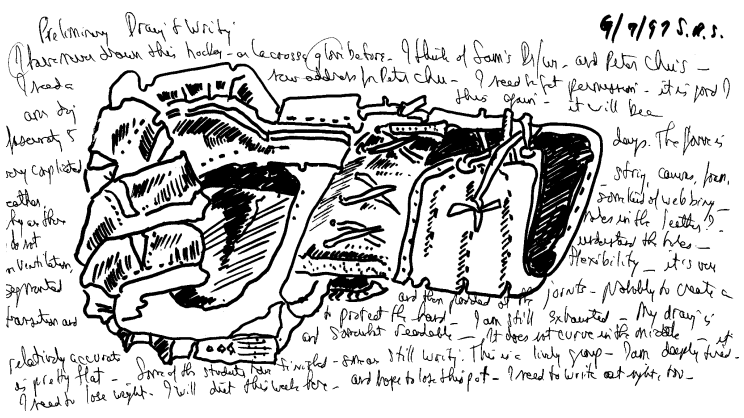 Preliminary Drawing & Writing 6/7/97 S.R.S.
I have never drawn this hockey - or lacrosse glove before. I think of Sam's - and Peter Chu's -
I need a new address for Peter Chu - I need to get permission - it is good I
am doing this again - it will be
days. The glove is
very complicated - string, canvas, foam,
leather, some kind of webbing -
holes in the leather? I
do not understand the holes -
ventilation, flexibility - it's very
segmented and then padded at the joints - probably to create a
transition and to protect the hand - I am still exhausted - My drawing is
and somewhat readable - It does not curve in the middle - it
relatively accurate
is pretty flat - Some of the students have finished - some are still writing. This is a lively group - I am deeply tired.
I need to lose weight. I will diet this week here - and hope to lose this pot - I need to write at night, too -